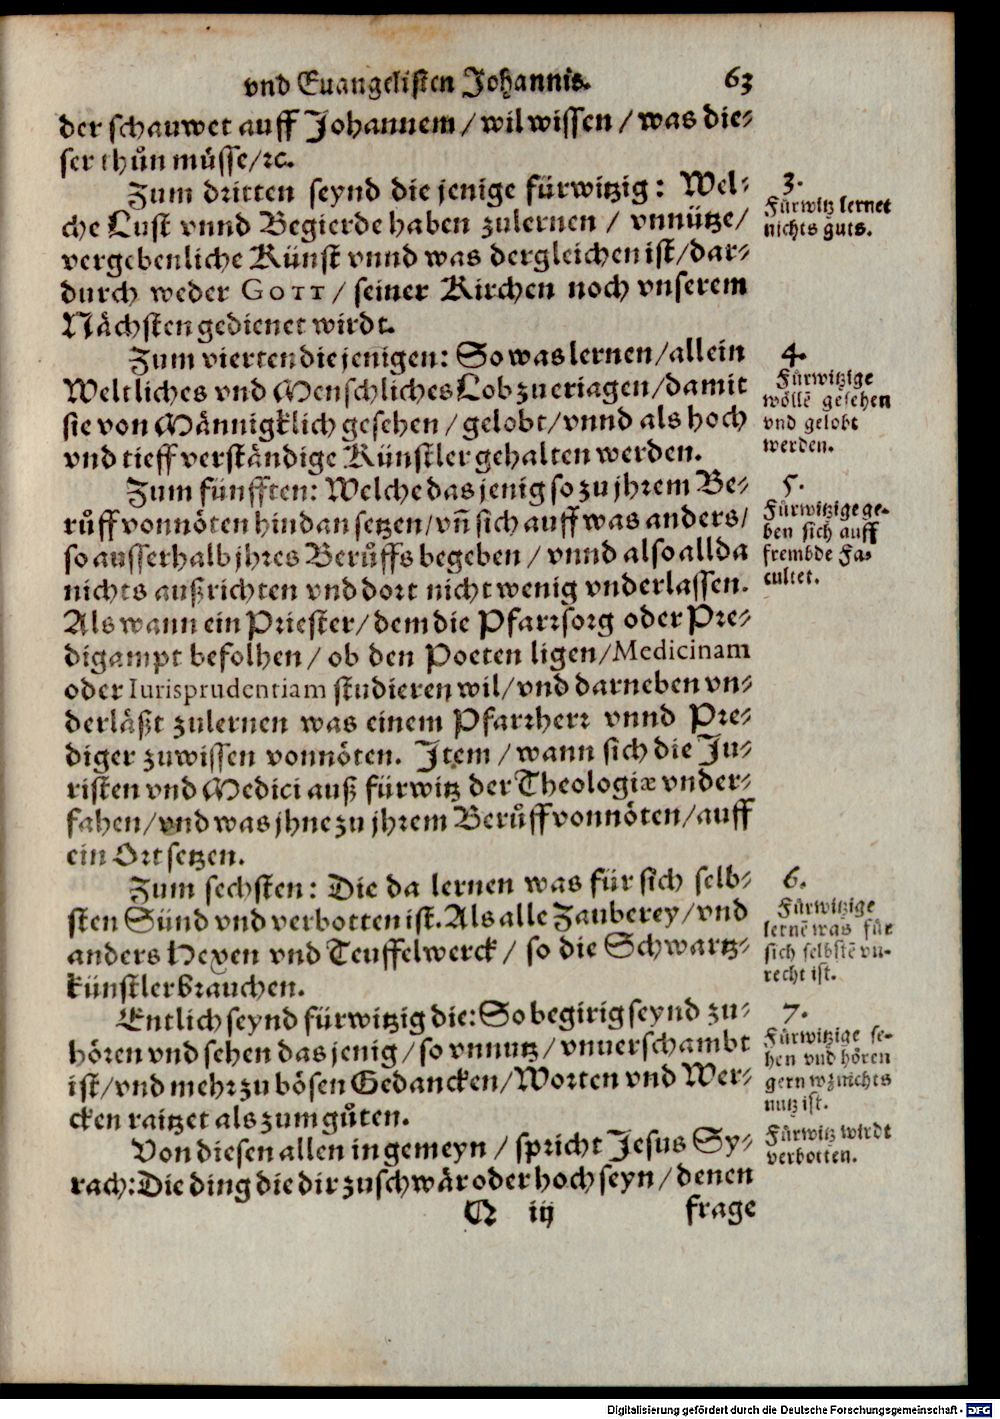 vnd Euangelisten Johannis. 63
der schauwet auff Johannem / wil wissen / was die-
ser thůn müsse/ꝛc.
Zum dritten seynd die jenige fürwitzig: Wel-
che Lust vnnd Begierde haben zulernen / vnnütze/
vergebenliche Künst vnnd was dergleichen ist/dar-
durch weder GOTT / seiner Kirchen noch vnserem
Nächsten gedienet wirdt.
Zum vierten die jenigen: So was lernen/allein
Weltliches vnd Menschliches Lob zu eriagen/damit
sie von Männigklich gesehen / gelobt/vnnd als hoch
vnd tieff verständige Künstler gehalten werden.
Zum fünfften: Welche das jenig so zu jhrem Be-
růff vonnöten hindan setzen/vñ sich auff was anders/
so ausserhalb jhres Berůffs begeben / vnnd also allda
nichts außrichten vnd dort nicht wenig vnderlassen.
Als wann ein Priester/ dem die Pfarrsorg oder Pre-
digampt befolhen / ob den Poeten ligen/Medicinam
oder Iurisprudentiam studieren wil/vnd darneben vn-
derläßt zulernen was einem Pfarrherr vnnd Pre-
diger zuwissen vonnöten. Item / wann sich die Ju-
risten vnd Medici auß fürwitz der Theologiæ vnder-
fahen/vnd was jhne zu jhrem Berůff vonnöten/auff
ein Ort setzen.
Zum sechsten: Die da lernen was für sich selb-
sten Sünd vnd verbotten ist. Als alle Zauberey/vnd
anders Hexen vnd Teuffelwerck / so die Schwartz-
künstler brauchen.
Entlich seynd fürwitzig die: So begirig seynd zu-
hören vnd sehen das jenig / so vnnutz/ vnuerschambt
ist/vnd mehr zu bösen Gedancken/Worten vnd Wer-
cken raitzet als zum gůten.
Von diesen allen in gemeyn / spricht Jesus Sy-
rach: Die ding die dir zu schwär oder hoch seyn / denen
Q iij frage
3.
Fürwitz lernet
nichts guts.
4.
Fürwitzige
wöllē gesehen
vnd gelobt
werden.
5.
Fürwitzige ge-
ben sich auff
frembde Fa-
cultet.
6.
Fürwitzige
lernē was für
sich selbstē vn-
recht ist.
7.
Fürwitzige se-
hen vnd hören
gern wz nichts
nutz ist.
Fürwitz wirdt
verbotten.
Digitalisierung gefördert durch die Deutsche Forschungsgemeinschaft - DFG